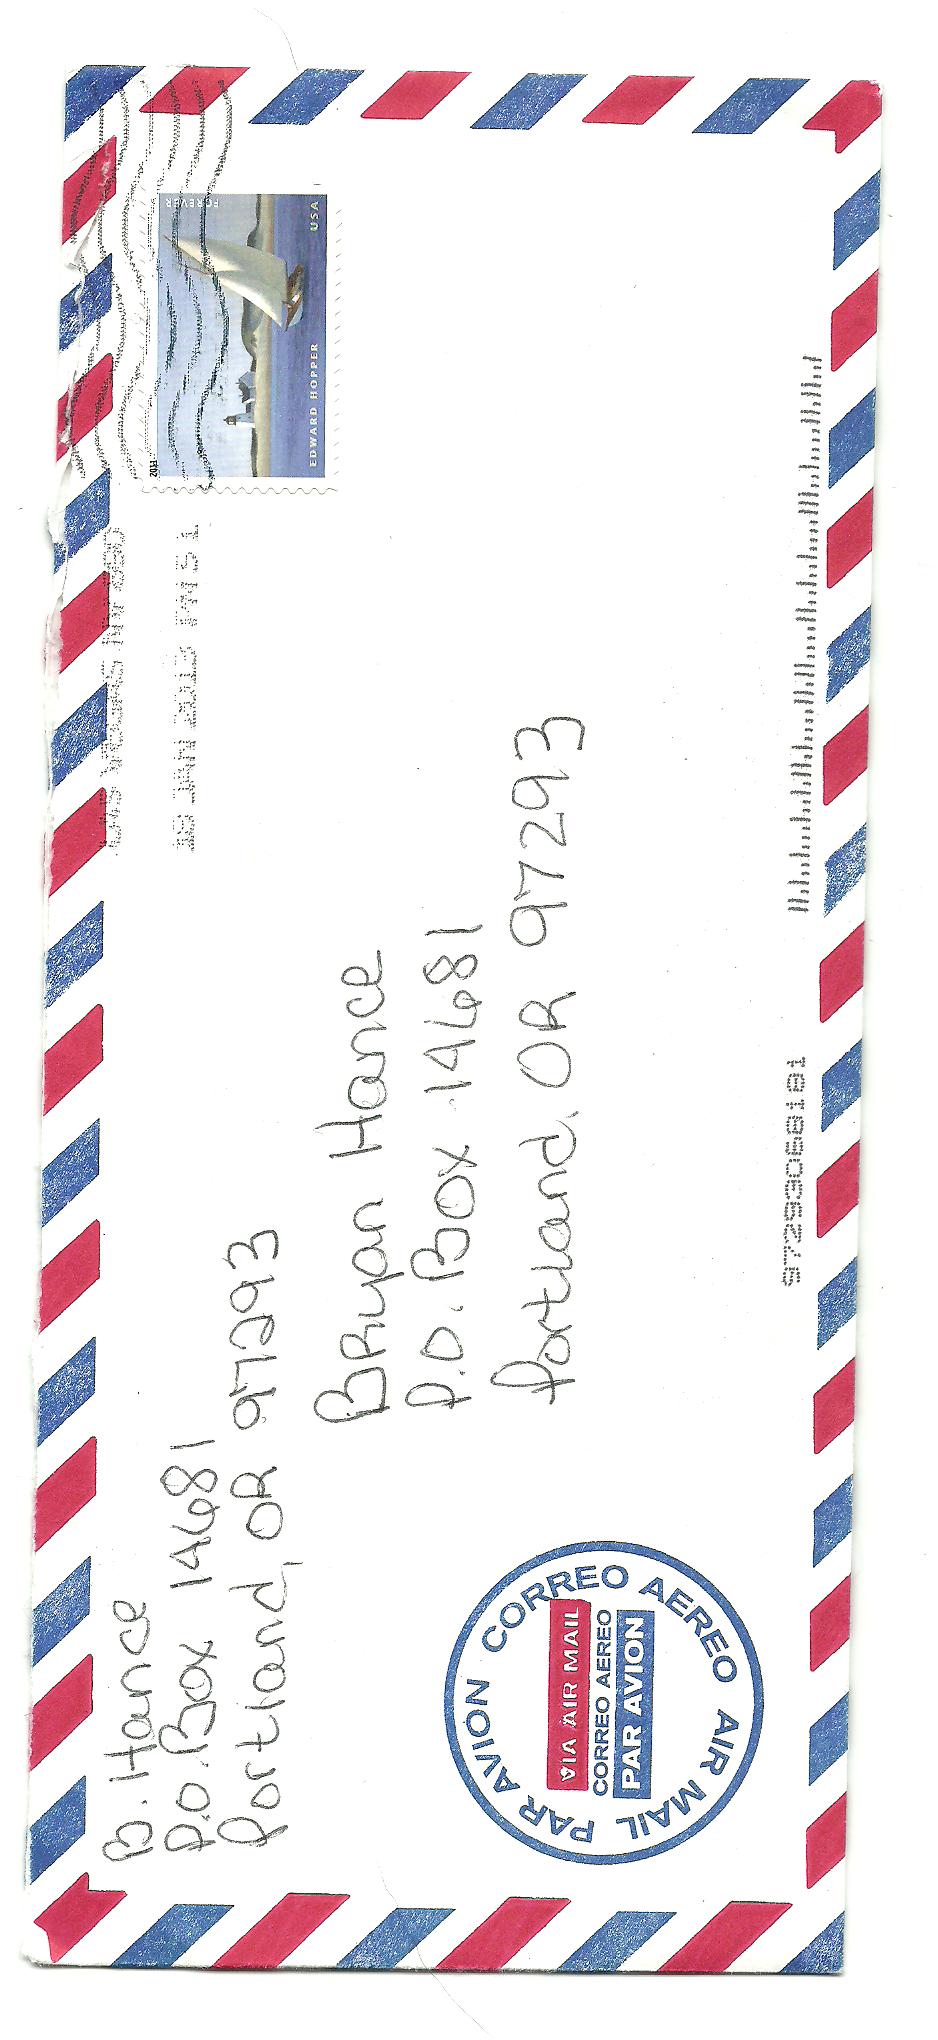 B. Hance
P.O. Box 14681
Portland, OR 97293
LAS VEGAS NV 890
18 JAN 2013 PM 5 L
FOREVER
USA
EDWARD HOPPER
2011
Bryan Hance
P.O. Box 14681
Portland, OR 97293
PAR AVION CORREO AEREO AIR MAIL
VIA AIR MAIL
CORREO AEREO
PAR AVION
97293068181